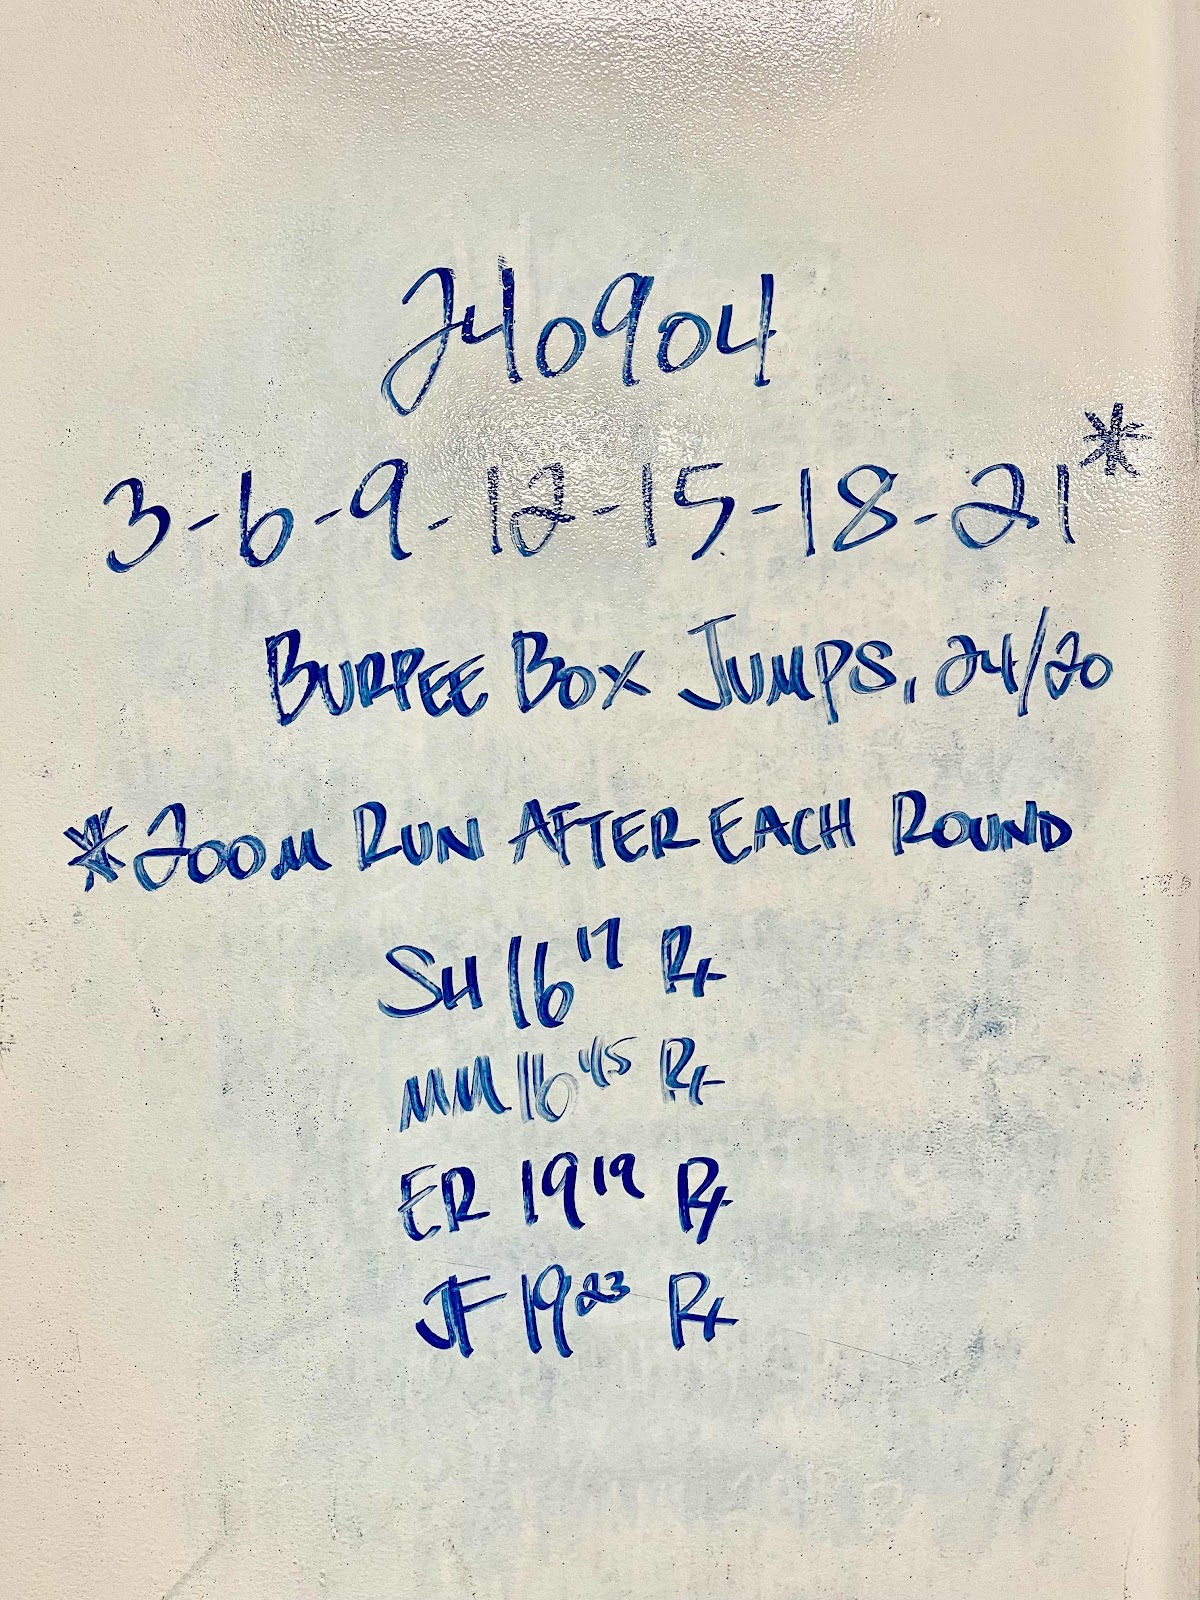 240904
3-6-9-12-15-18-21*
BURPEE BOX JUMPS, 24/20
*200M RUN AFTER EACH ROUND
SH 16 17 Rx
MM 16 45 Rx
ER 19 19 Rx
JF 19 23 Rx